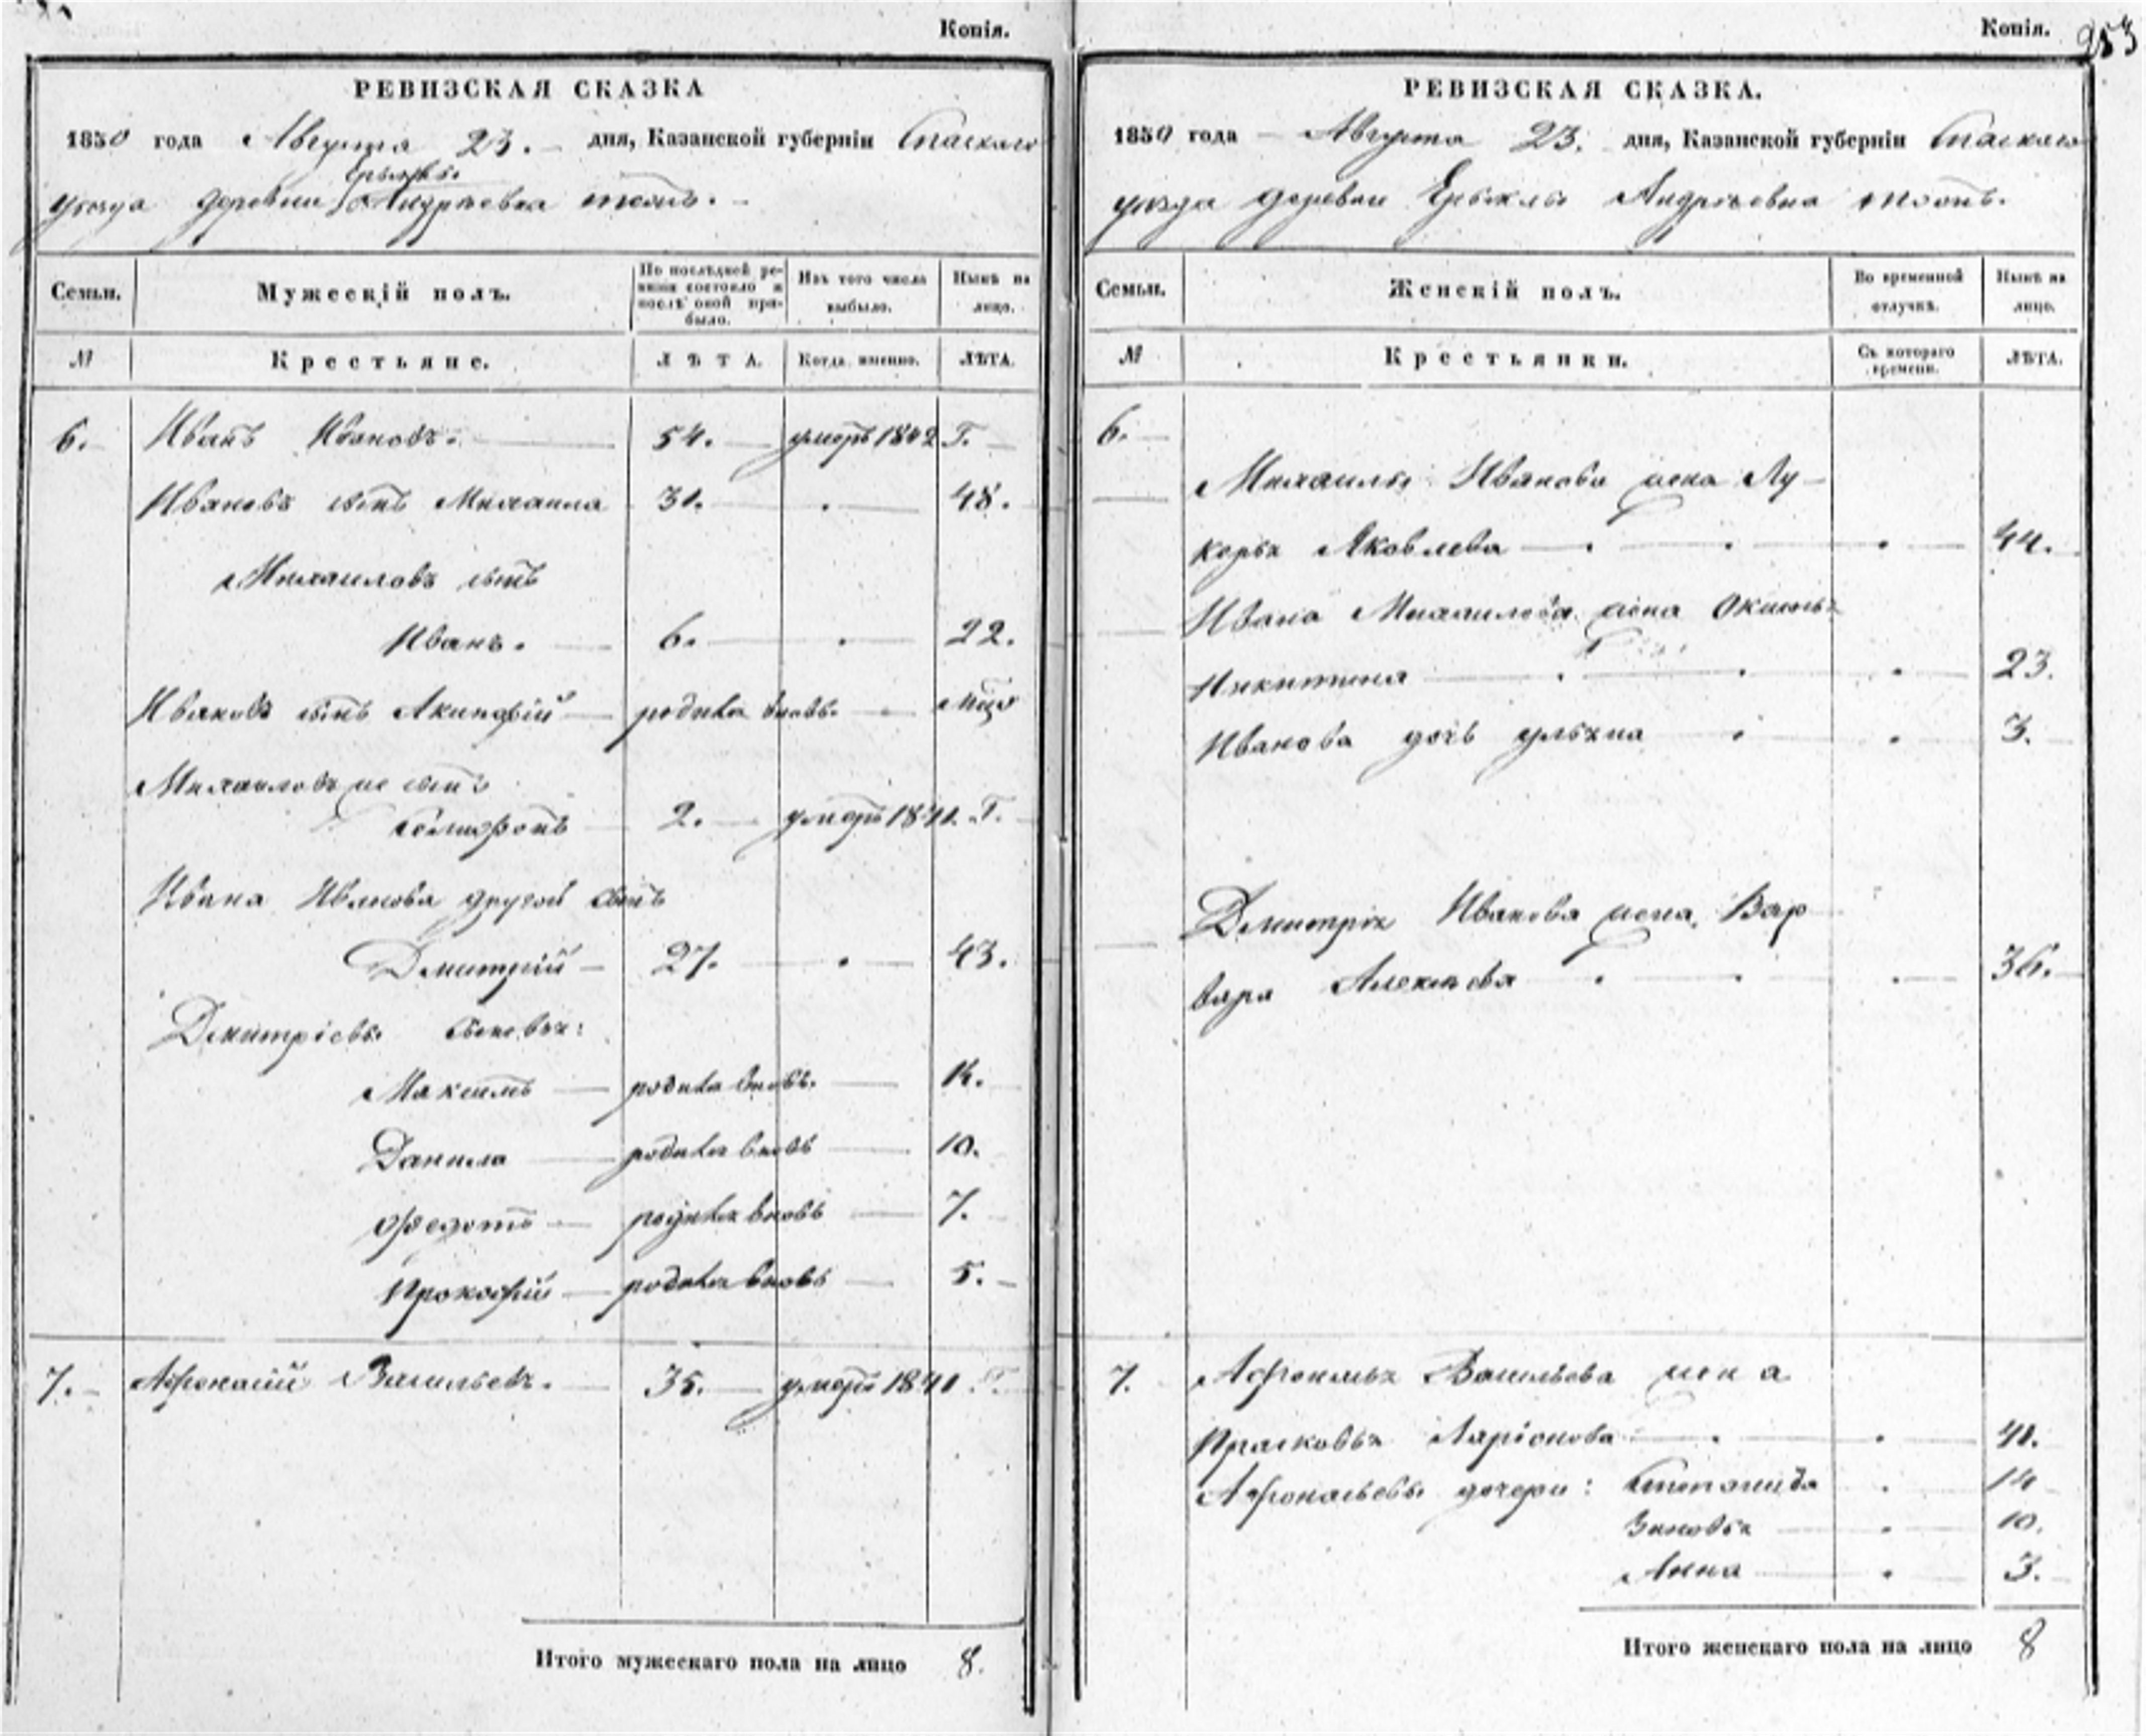 Копія.
РЕВИЗСКАЯ СКАЗКА
1850 года Августа 23. дня, Казанской губерніи Спаскаго
Ерыклы
уезда деревни Андрѣевка тожъ.
Семьи.
Мужескій полъ.
По послѣдней ре-
визіи состояло и
послѣ оной при-
было.
Изъ того числа
выбыло.
Нынѣ на
лицо.
№
Крестьяне.
ЛѢТА.
Когда именно.
ЛѢТА.
6. Иванъ Ивановъ. 54. умеръ 1842 Г.
Ивановъ сынъ Михаила 31. 48.
Михаиловъ сынъ
Иванъ. 6. 22.
Ивановъ сынъ Акинфій родился вновь.
Михаиловъ же сынъ
2. умеръ 1841. Г.
Ивана Иванова другой сынъ
Дмитрій 27. 43.
Дмитріевы сыновья:
Максимъ родился вновь. 14.
Данила родился вновь 10.
Федотъ родился вновь 7.
Прокофій родился вновь 5.
7. Афонасій Васильевъ. 35. умеръ 1841 Г.
Итого мужескаго пола на лицо 8.
Копія.
253
РЕВИЗСКАЯ СКАЗКА.
1850 года Августа 23. дня, Казанской губерніи Спаскаго
уезда деревни Ерыклы Андрѣевка тожъ.
Семьи.
Женскій полъ.
Во временной
отлучкѣ.
Нынѣ на
лицо.
№
Крестьянки.
Съ котораго
времени.
ЛѢТА.
6.
Михаилы Иванова жена Лу-
керья Яковлева 44.
Ивана Михаилова жена Окинья
Никитина 23.
Иванова дочь Ульяна 3.
Дмитрія Иванова жена Вар
вара Алексѣева 36.
7. Афонасья Васильева жена
Прасковья Ларіонова 41.
Афонасьевы дочери: Степанида 14
Зиновья 10.
Анна 3.
Итого женскаго пола на лицо 8